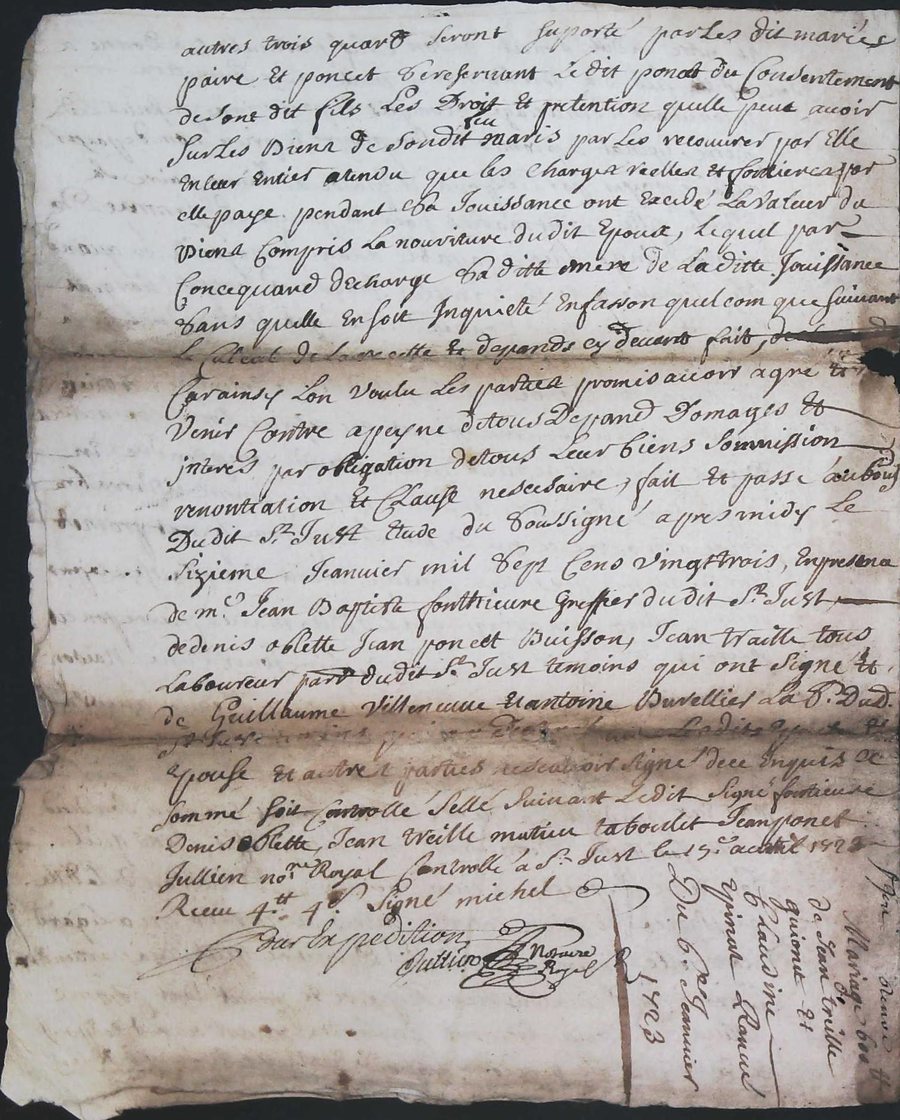 autres trois quard seront suporté par Les dit mariés
paire Et poncet Se reservant Ledit poncet du Consentement
de sont dit fils Les Droit Et pretention quelle peut avoir
Sur Les Biens de Sondit feu maris par Les recouvrer par Elle
En leur Entier atendu que les Charges reelles Et fontieres par
elle paye pendant Sa Jouissance ont Excedé La Valeur du
Biens Compris La nouriture du dit Epoux, Lequel par
Concequand decharge Saditte mere de Laditte Jouissance
Sans quelle En soit Inquieté En fasson quelcom que suivant
Le Calcul de La recette Et depands cy devant fait,
Car ainsy Lon voulu Les parties promis avoir agré Et
Venir Contre a peyne de tous Depand Domages Et
interes par obligation de tous Leur biens Sommission
renontiation Et Clause nescesaire, fait Et passé au bourg
Dudit St. Just Etude du Soussigné apres midy Le
Sizieme Jeanvier mil Sept Cens vingt trois, En presence
de me. Jean Baptiste fonthieure Greffier du dit St. Just,
de denis oblette Jean poncet Buisson, Jean traille tous
Laboureur dudit St. Just temoins qui ont Signé Et
de Guillaume Villeneuve Et antoine Burellier La Pe. Dud.
St. Just Ladite
Epouse Et autres parties ne scavoir Signé de ce Enquis Et
Sommé soit Controllé Sellé Suivant Ledit Signé fontieure
Denis oblette, Jean treille matieu taboulet Jean ponet
Jullien nore. Royal Controllé a St. Just le 15e. 1723
Receu 4tt 4s. Signé michel
Par Expedition
Jullien Notaire
Royal
Mariage
de Jean treille
guionet Et
Clausine
Epinat
Du 6e. Janvier
1723